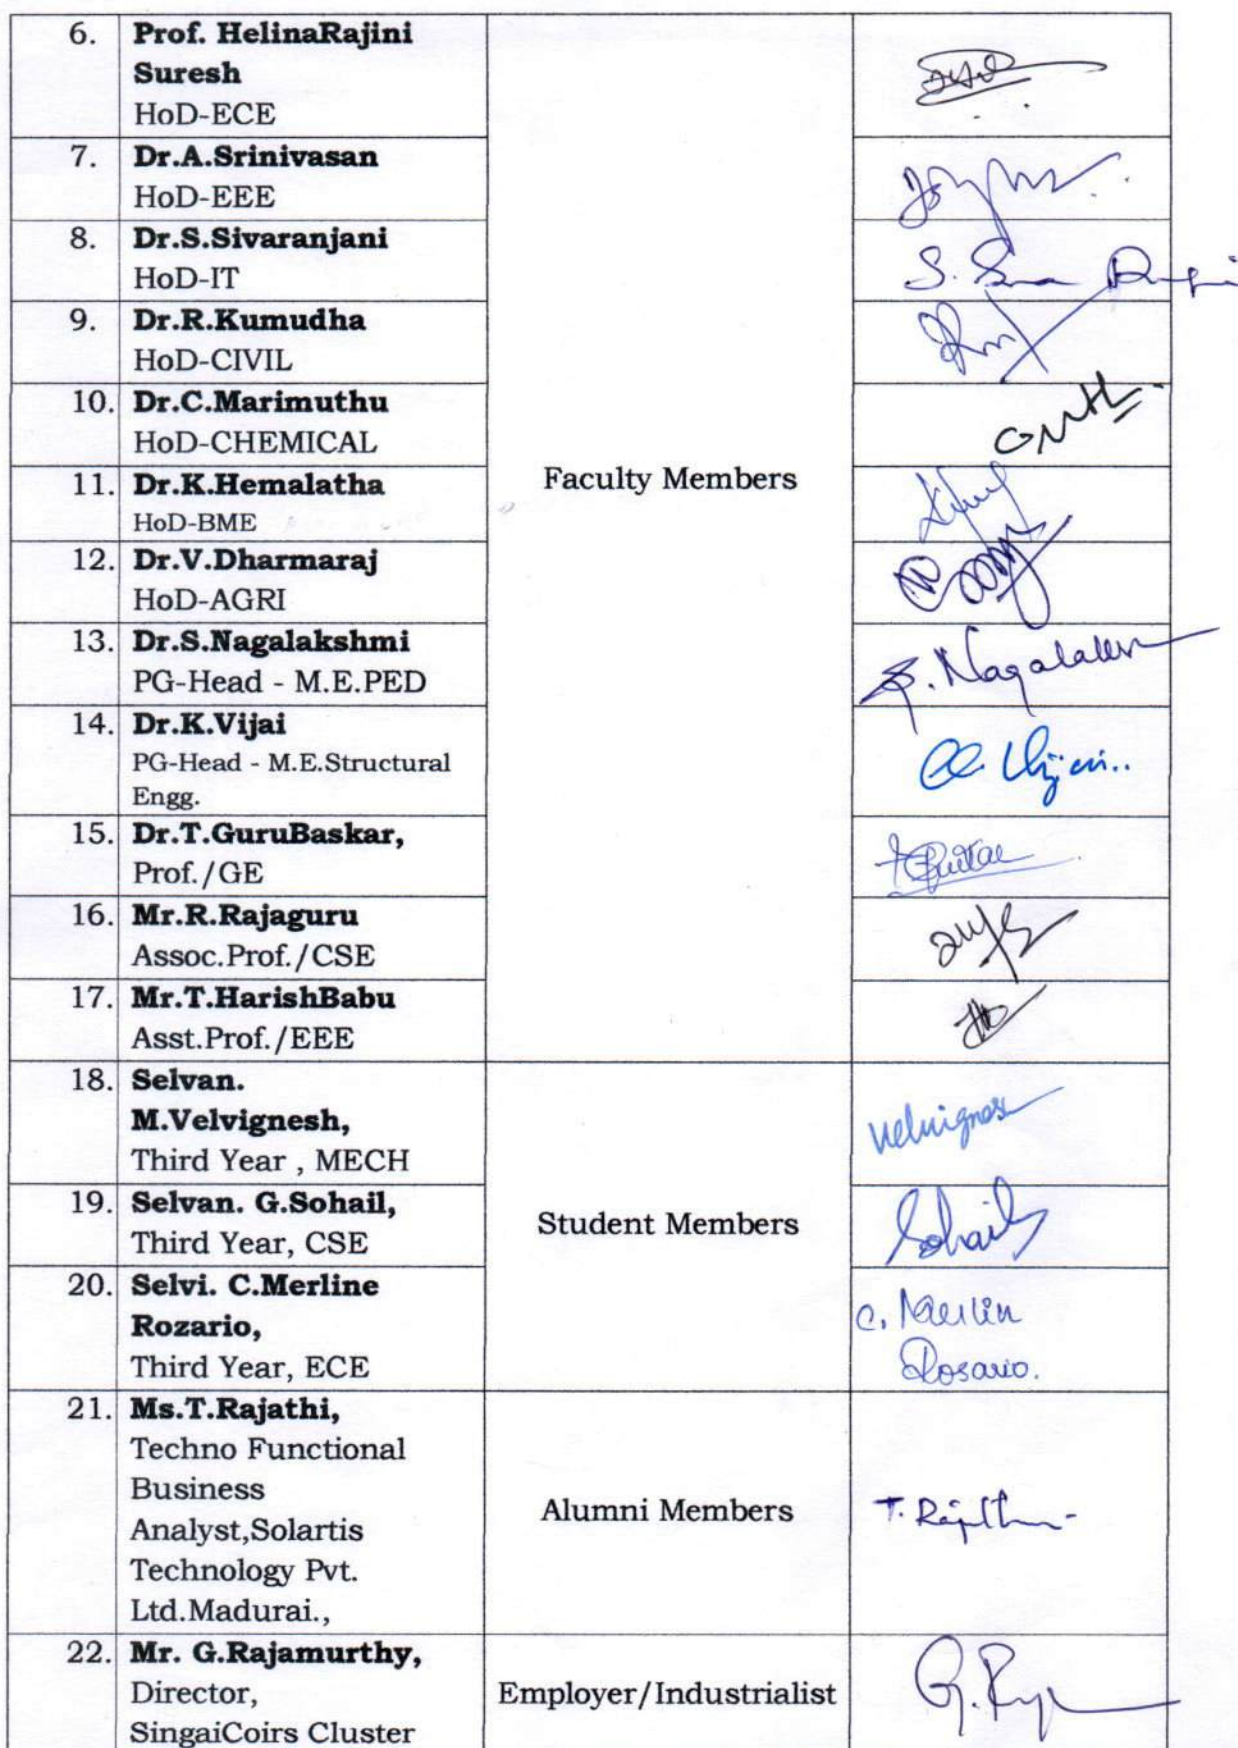 6. Prof. HelinaRajini
Suresh
HoD-ECE
7. Dr.A.Srinivasan
HoD-EEE
8. Dr.S.Sivaranjani
HoD-IT
S.
9. Dr.R.Kumudha
HoD-CIVIL
10. Dr.C.Marimuthu
HoD-CHEMICAL
Faculty Members
11. Dr.K.Hemalatha
HoD-BME
12. Dr.V.Dharmaraj
HoD-AGRI
13. Dr.S.Nagalakshmi
PG-Head - M.E.PED
14. Dr.K.Vijai
PG-Head - M.E.Structural
Engg.
15. Dr.T.GuruBaskar,
Prof./GE
16. Mr.R.Rajaguru
Assoc.Prof./CSE
17. Mr.T.HarishBabu
Asst.Prof./EEE
18. Selvan.
M.Velvignesh,
Third Year , MECH
19. Selvan. G.Sohail,
Third Year, CSE
Student Members
Sohail
20. Selvi. C.Merline
Rozario,
Third Year, ECE
C. Merlin
Rosario.
21. Ms.T.Rajathi,
Techno Functional
Business
Analyst,Solartis
Technology Pvt.
Ltd.Madurai.,
Alumni Members
T.
22. Mr. G.Rajamurthy,
Director,
SingaiCoirs Cluster
Employer/Industrialist
G.